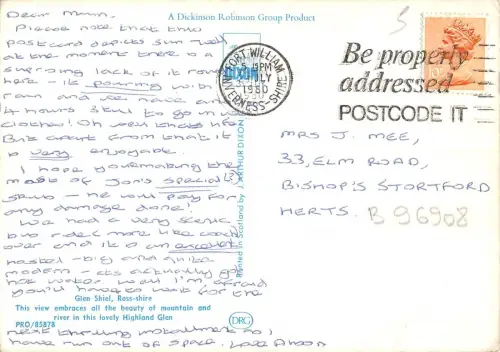 A Dickinson Robinson Group Product
Dear Mum,
Please note that this
postcard depicts sun. Well
at the moment there is a
surprising lack of it round
here - it is pouring with
rain and we have
4 hours still to go in wet
clothes! Oh well that's
But apart from that it
is very enjoyable.
I hope your making the
most of Jon's special
- he will pay for
any damage done!
We had a very scenic
bus ride (more like coach)
over and it's an excellent
hostel - big and quite
modern - it's actually got
hot water. Well I'm afraid
you'll have to wait for the
next thrilling installment as I
have run out of space. Love
Glen Shiel, Ross-shire
This view embraces all the beauty of mountain and
river in this lovely Highland Glen
PRO/85878
DRG
Printed in Scotland by J. ARTHUR DIXON
DIXON
FORT WILLIAM
PM
JULY
1980
INVERNESS-SHIRE
Be properly
addressed
POSTCODE IT
MRS J. MEE,
33, ELM ROAD,
BISHOP'S STORTFORD
HERTS.
B 96908
5